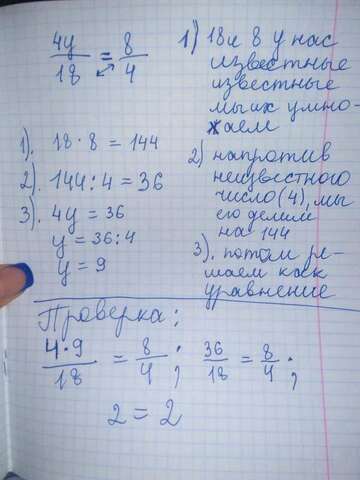 4y/18 = 8/4
1). 18 · 8 = 144
2). 144 : 4 = 36
3). 4y = 36
y = 36 : 4
y = 9
1) 18 и 8 у нас
известные
известные
мы их умно-
жаем
2) напротив
неизвестного
число (4), мы
его делим
на 144
3). потом ре-
шаем как
уравнение
Проверка:
4·9/18 = 8/4 ; 36/18 = 8/4 ;
2 = 2